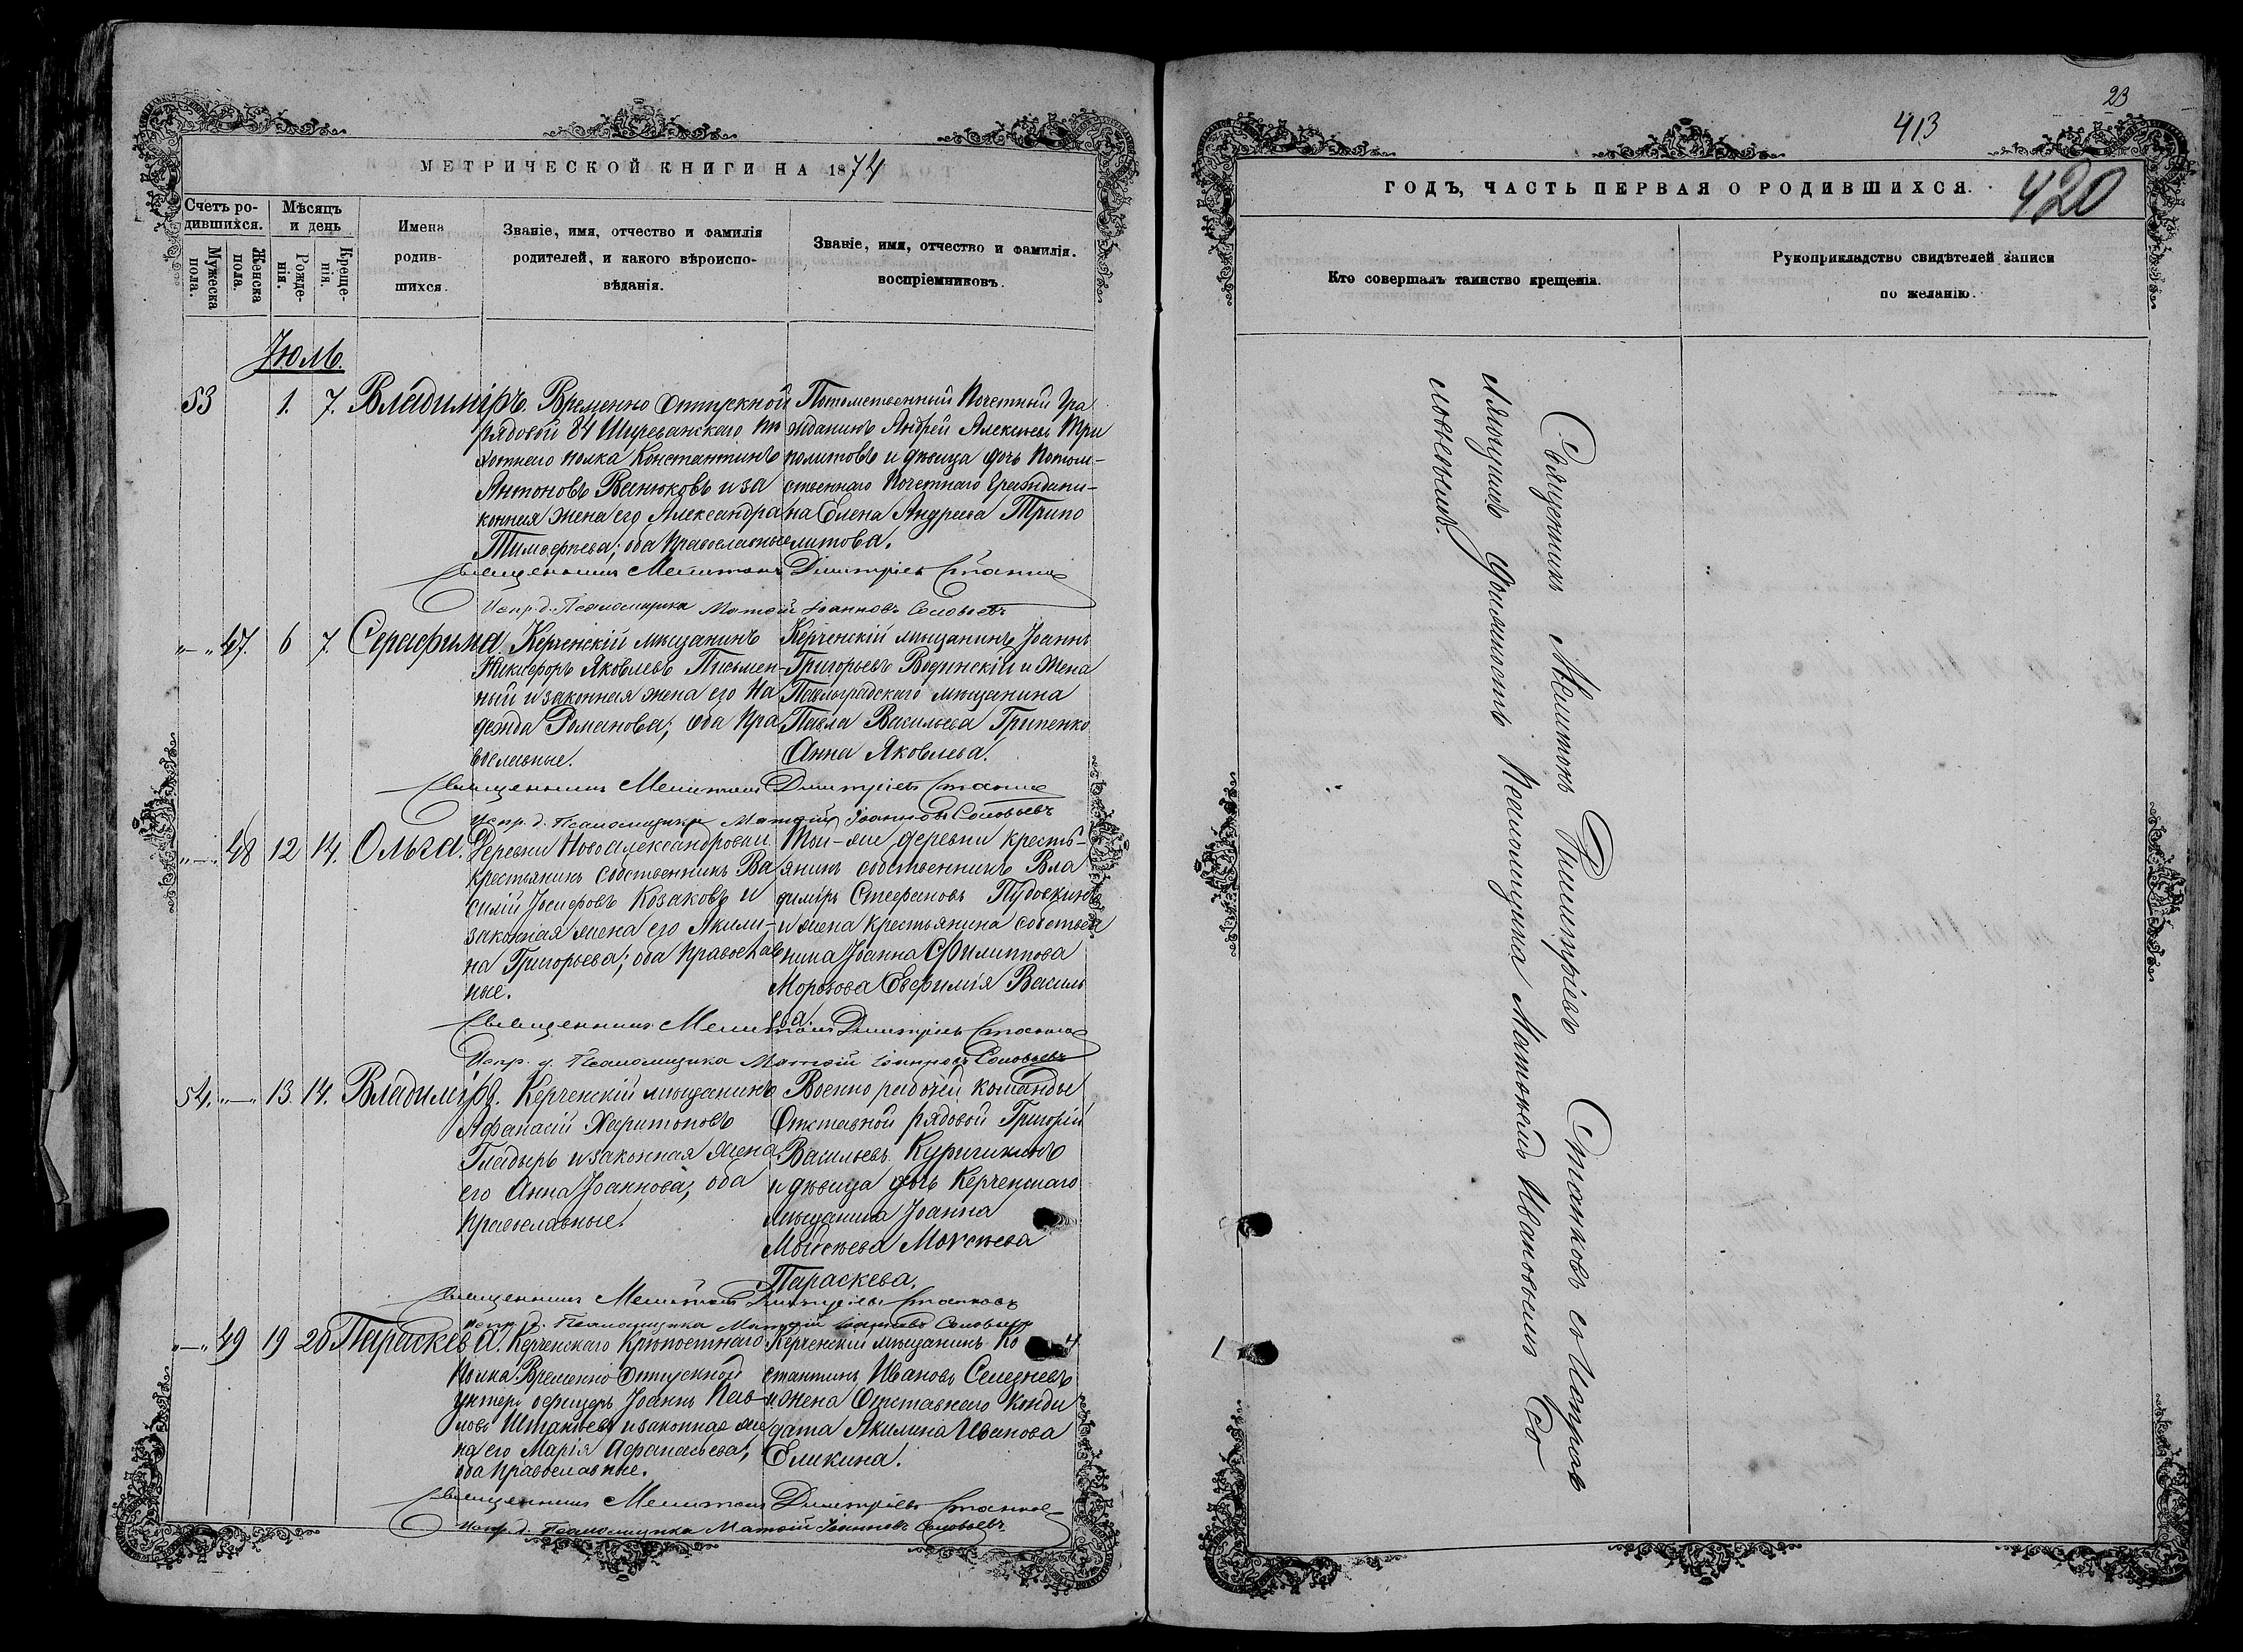 МЕТРИЧЕСКОЙ КНИГИ НА 1874
Счетъ родившихся.
Мужеска пола.
Женска пола.
Мѣсяцъ и день
Рожденія.
Крещенія.
Имена родившихся.
Званіе, имя, отчество и фамилія родителей, и какого вѣроисповѣданія.
Званіе, имя, отчество и фамилія воспріемниковъ.
Іюль.
53 1. 7. Владиміръ.
Временно Отпускной
рядовой 84 Ширванскаго пѣ
хотнаго полка Константинъ
Антоновъ Ванюковъ и за
конная жена его Александра
Тимофеева; оба православные
Потомственный Почетный Гра
жданинъ Андрей Алексѣевъ Три
политовъ и дѣвица дочь Потом-
ственнаго Почетнаго Граждани-
на Елена Андреева Трипо
литова.
Священникъ Мелитонъ Димитріевъ Станковъ
Испр. д. Псаломщика Матѳій Іоанновъ Соловьевъ
"—" 47. 6 7. Серафима.
Керченскій мѣщанинъ
Никифоръ Яковлевъ Письмен-
ный и законная жена его На
дежда Романова; оба пра
вославные.
Керченскій мѣщанинъ Іоаннъ
Григорьевъ Водинскій и жена
Павлоградскаго мѣщанина
Павла Васильева Грипенко
Анна Яковлева.
Священникъ Мелитонъ Димитріевъ Станковъ
Испр. д. Псаломщика Матѳій Іоанновъ Соловьевъ
"—" 48 12 14. Ольга.
Деревни Новоалександровки
крестьянинъ собственникъ Ва
силій Іосифовъ Козаковъ и
законная жена его Акили-
на Григорьева; оба православ
ные.
Той-же деревни кресть-
янинъ собственникъ Вла
диміръ Стефановъ Пудовкинъ
и жена крестьянина собствен
ника Іоанна Филиппова
Морозова Евфимія Василь
ева
Священникъ Мелитонъ Димитріевъ Станковъ
Испр. д. Псаломщика Матѳій Іоанновъ Соловьевъ
54. "—" 13. 14. Владиміръ.
Керченскій мѣщанинъ
Афанасій Харитоновъ
Гладырь и законная жена
его Анна Іоаннова; оба
православные.
Военно рабочей команды
Отставной рядовой Григорій
Васильевъ
и дѣвица дочь Керченскаго
мѣщанина Іоанна
Мойсѣева Моксѣева
Параскева.
Священникъ Мелитонъ Димитріевъ Станковъ
Испр. д. Псаломщика Матѳій Іоанновъ Соловьевъ
"—" 49 19 20 Параскева.
Керченскаго Крѣпостнаго
полка Временно-Отпускной
унтеръ офицеръ Іоаннъ Пав-
ловъ и законная же
на его Марія Афанасьева;
оба православные.
Керченскій мѣщанинъ Ко
стантинъ Ивановъ Селезневъ
и жена Отставнаго Конди
дата Акилина Иванова
Еликина.
Священникъ Мелитонъ Димитріевъ Станковъ
Испр. д. Псаломщика Матѳій Іоанновъ Соловьевъ
23
413
420
ГОДЪ, ЧАСТЬ ПЕРВАЯ О РОДИВШИХСЯ.
Кто совершалъ таинство крещенія.
Рукоприкладство свидѣтелей записи по желанію.
Священникъ Мелитонъ Димитріевъ Станковъ съ Исправ
ляющимъ должность Псаломщика Матѳѣемъ Ивановымъ Со
ловьевымъ.